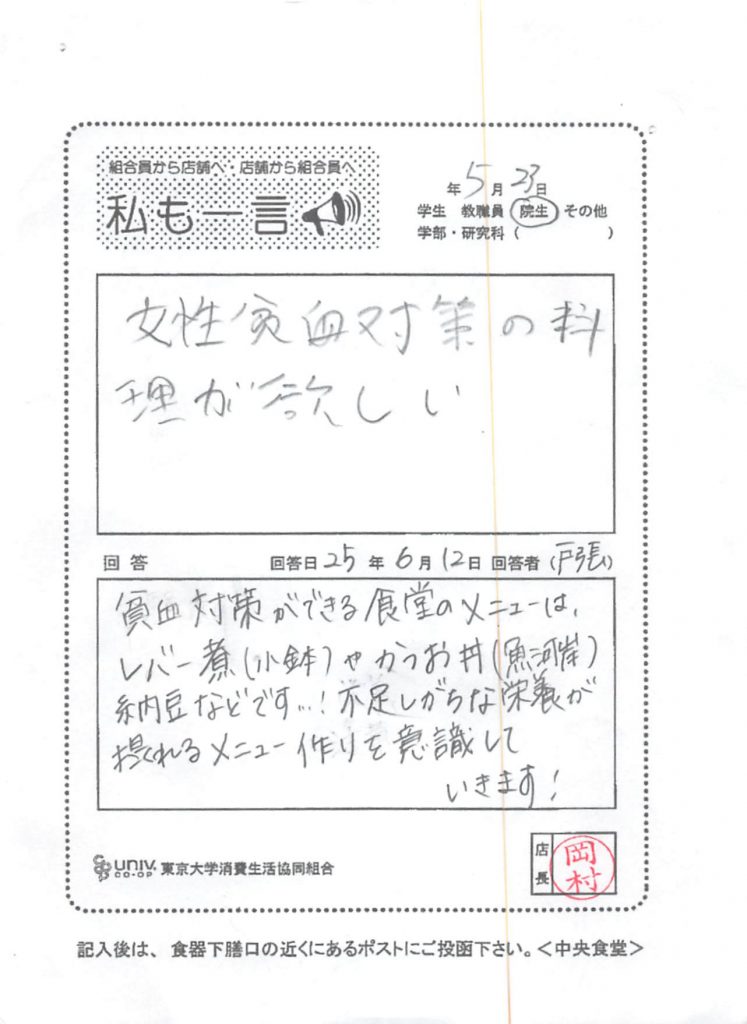 組合員から店舗へ・店舗から組合員へ
私も一言
年 5月 23日
学生 教職員 院生 その他
学部・研究科( )
女性貧血対策の料
理が欲しい
回答 回答日 25年 6月 12日 回答者(戸張)
貧血対策ができる食堂のメニューは、
レバー煮(小鉢)やかつお丼(魚河岸)
納豆などです…!不足しがちな栄養が
摂れるメニュー作りを意識して
いきます!
店長
岡村
UNIV. CO-OP 東京大学消費生活協同組合
記入後は、食器下膳口の近くにあるポストにご投函下さい。<中央食堂>